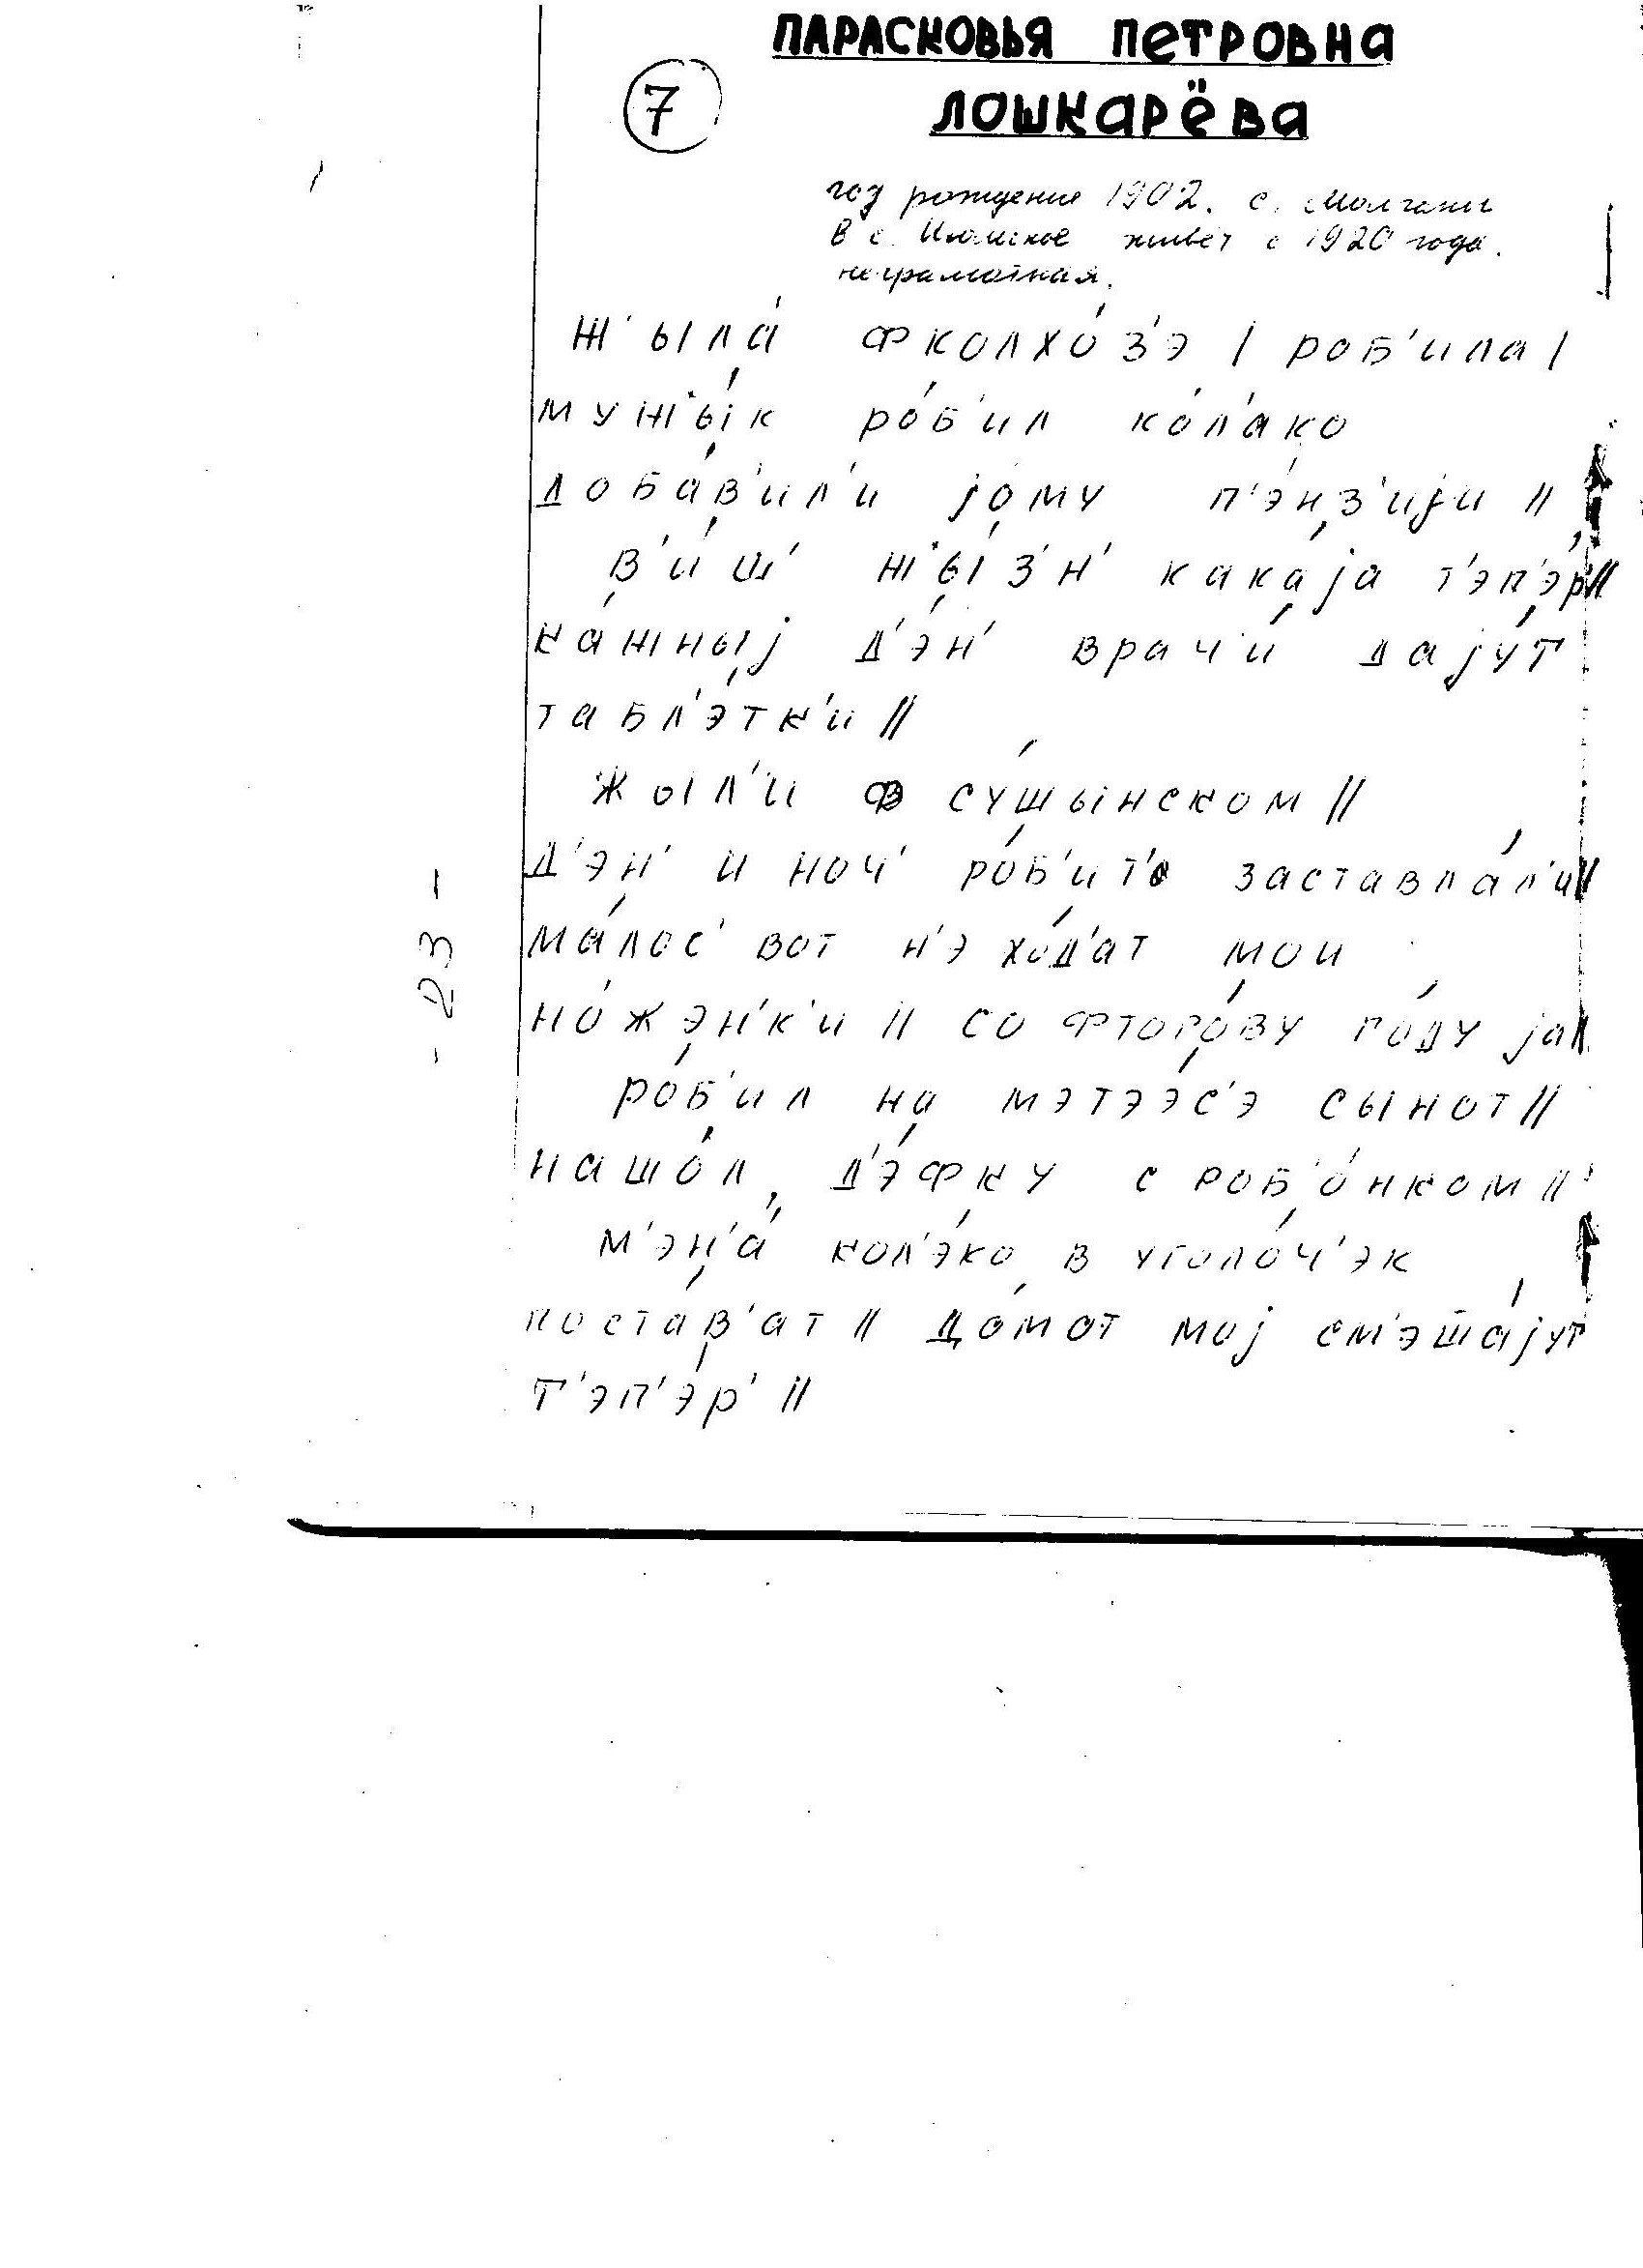 ПАРАСКОВЬЯ ПЕТРОВНА
7
ЛОШКАРЁВА
год рождение 1902. с. Молчаны
В с. Июмское живёт с 1920 года.
неграмотная.
Ж'ыла́ фколхо́з'э | роб'ила |
муж'ы́к ро́б'ил ко́л'ако
доба́в'ил'и јому п'э́нз'ији ||
в'и́ш' ж'ы́з'н' кака́ја т'эп'э́р' ||
ка́жныј д'э́н' врач'и́ дају́т
табл'э́тк'и ||
жыл'и ф су́шынском ||
д'эн' и ноч' ро́б'ит' заставл'а́л'и ||
ма́лос' вот н'э хо́д'ат мои
но́жэн'к'и || со фторо́ву го́ду ја ||
ро́б'ил на мэтээ́с'э сынот ||
нашо́л д'э́фку с роб'о́нком ||
м'эн'а́ кол'э́ко в уголо́ч'эк
поста́в'ат || до́мот мој см'эша́јут
т'эп'э́р' ||
- 23 -